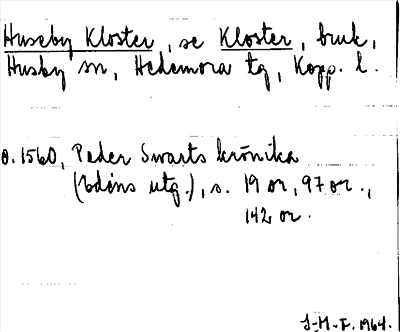 Huseby Kloster, se Kloster, bruk,
Husby sn, Hedemora tg, Kopp. l.
o. 1560, Peder Swarts krönika
(Edéns utg.), s. 19 or, 97 or.,
142 or.
I-M-F. 1964.